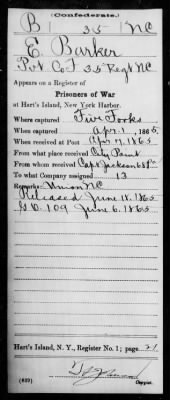 (Confederate.)
B 35 NC
E. Barker
Pvt Co I 35 Regt NC
Appears on a Register of
Prisoners of War
at Hart's Island, New York Harbor.
Where captured Five Forks
When captured Apr. 1, 1865.
When received at Post Apr 7, 1865
From what place received City Point
From whom received Capt Jackson 68 Pa
To what company assigned 13
Remarks: Union NC
Released June 18, 1865
G.O. 109 June 6, 1865
Hart's Island, N. Y., Register No. 1; page 21
(639)
Copyist.